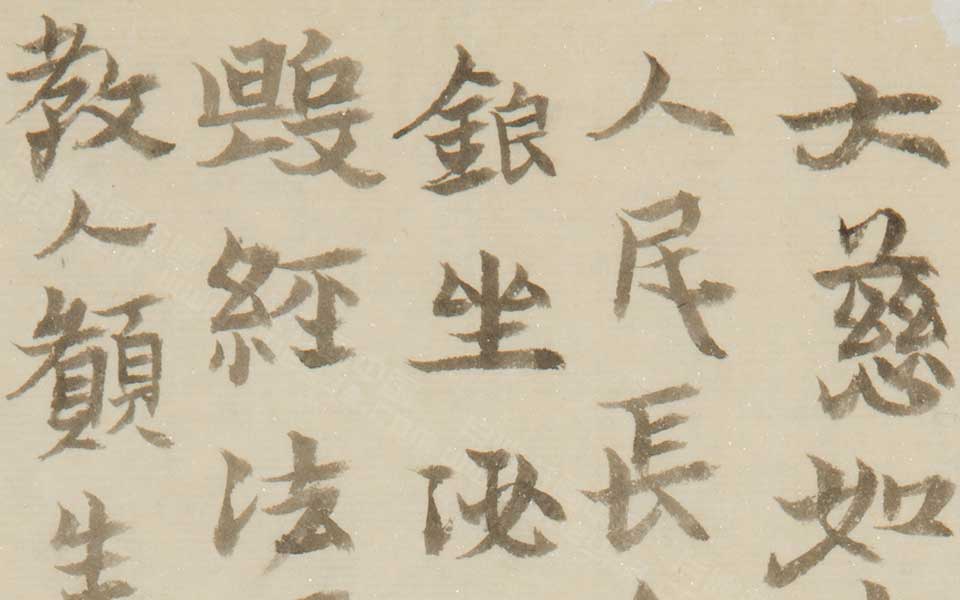 大慈如
人民長
銀坐泌
毀經法
教人願生